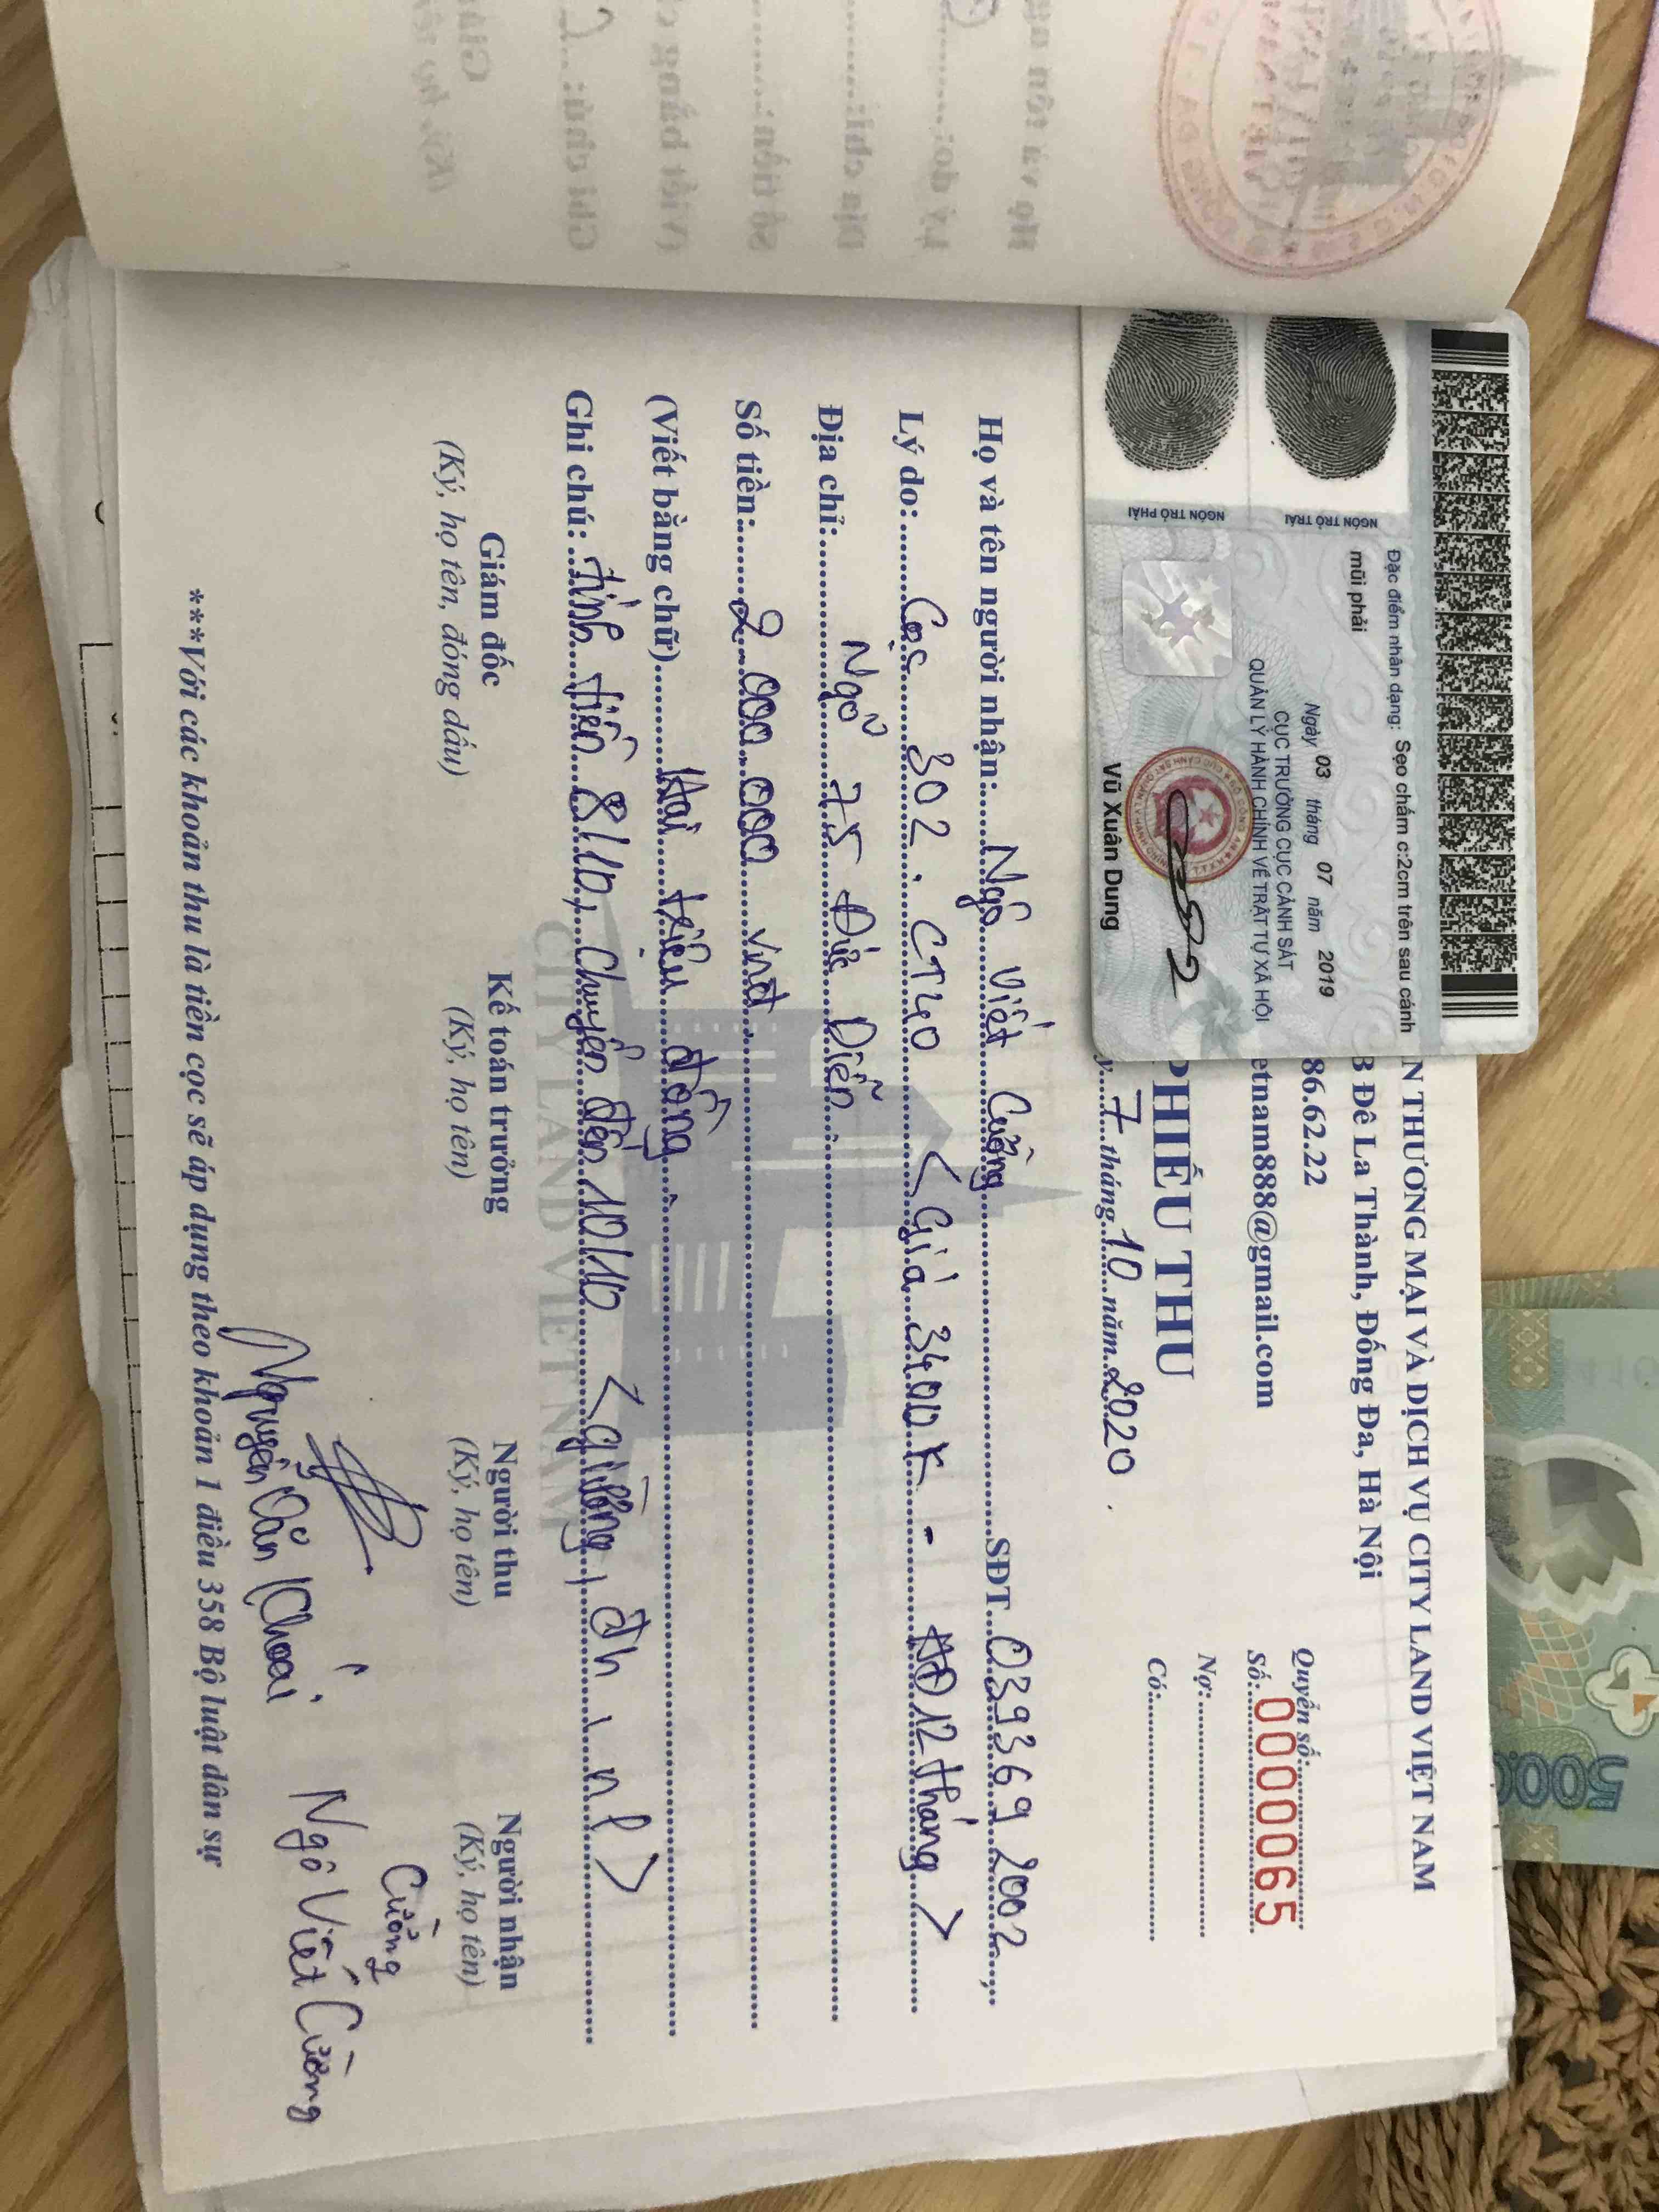 N THƯƠNG MẠI VÀ DỊCH VỤ CITY LAND VIỆT NAM
B Đê La Thành, Đống Đa, Hà Nội
86.62.22
etnam888@gmail.com
Quyển số:
Số: 0000065
Nợ:
Có:
PHIẾU THU
y 7 tháng 10 năm 2020
Họ và tên người nhận: Ngô Viết Cường SĐT 0393692002
Lý do: Cọc 302 . CT40 < Giá 3400K - HĐ 12 tháng >
Địa chỉ: Ngõ 75 Đức Diễn
Số tiền: 2.000.000 vnđ
(Viết bằng chữ) Hai triệu đồng
Ghi chú: tính tiền 8/10, chuyển đến 10/10 < giường, đh, nl >
Giám đốc
(Ký, họ tên, đóng dấu)
Kế toán trưởng
(Ký, họ tên)
Người thu
(Ký, họ tên)
Người nhận
(Ký, họ tên)
Nguyễn Văn Khoái
Cường
Ngô Viết Cường
***Với các khoản thu là tiền cọc sẽ áp dụng theo khoản 1 điều 358 Bộ luật dân sự
CITY LAND VIET NAM
Đặc điểm nhân dạng: Sẹo chấm c:2cm trên sau cánh
mũi phải
Ngày 03 tháng 07 năm 2019
CỤC TRƯỞNG CỤC CẢNH SÁT
QUẢN LÝ HÀNH CHÍNH VỀ TRẬT TỰ XÃ HỘI
Vũ Xuân Dung
NGÓN TRỎ TRÁI
NGÓN TRỎ PHẢI